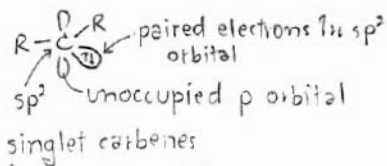 R-C R paired electrons in sp²
orbital
sp² unoccupied p orbital
singlet carbenes